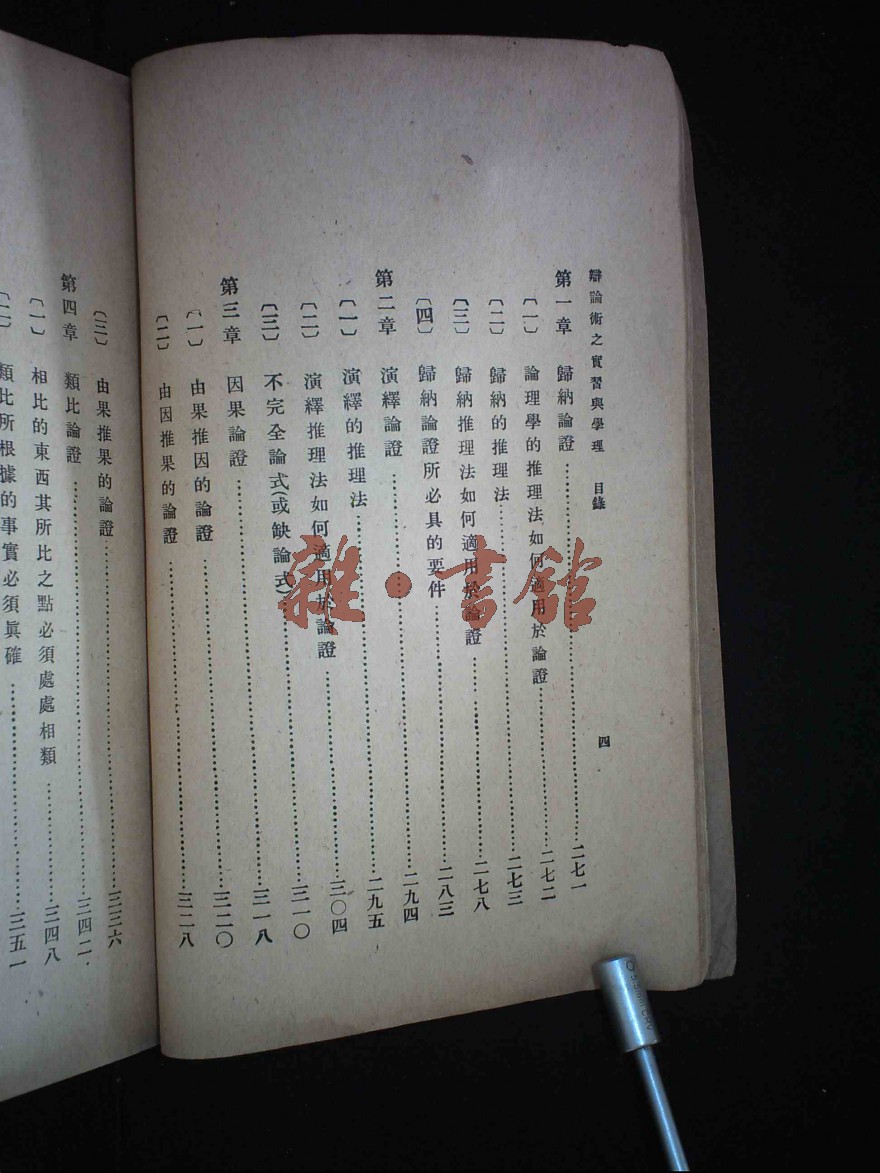 辯論術之實習與學理　目錄
四
第一章　歸納論證……………二七一
〔一〕　論理學的推理法如何適用於論證……………二七二
〔二〕　歸納的推理法……………二七三
〔三〕　歸納推理法如何適用於論證……………二七八
〔四〕　歸納論證所必具的要件……………二八三
第二章　演繹論證……………二九四
〔一〕　演繹的推理法……………二九五
〔二〕　演繹推理法如何適用於論證……………三〇四
〔三〕　不完全論式(或缺論式)……………三一〇
第三章　因果論證……………三一八
〔一〕　由果推因的論證……………三二〇
〔二〕　由因推果的論證……………三二八
〔三〕　由果推果的論證……………三三六
第四章　類比論證……………三四二
〔一〕　相比的東西其所比之點必須處處相類……………三四八
〔二〕　類比所根據的事實必須眞確……………三五一
雜·書館
5.5mm CRV